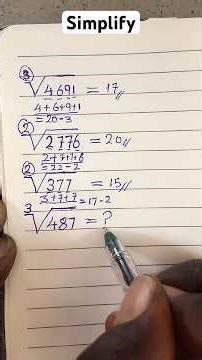 Simplify
③√4691 = 17
4+6+9+1
= 20-3
②√2776 = 20
2+7+7+6
= 22-2
②√377 = 15
3+7+7 = 17-2
³√487 = ?